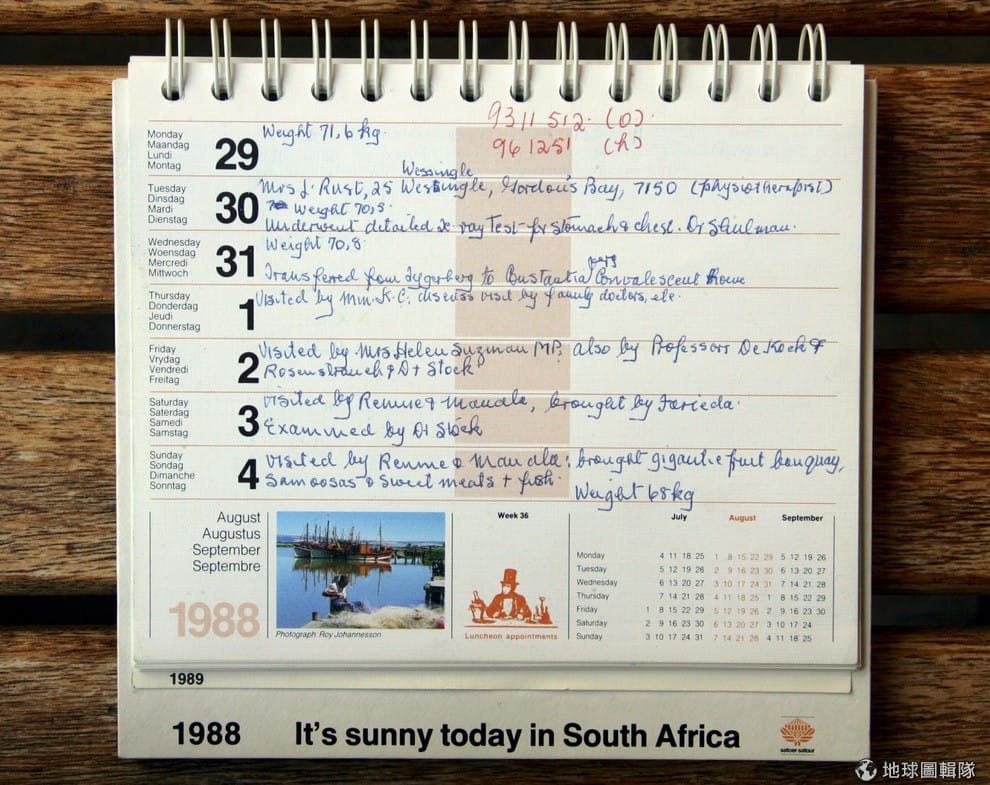 9311 512. (O).
961251 (h)
Monday
Maandag
Lundi
Montag
29
Weight 71,6 kg.
Wessingle
Tuesday
Dinsdag
Mardi
Dienstag
30
Mrs J. Rust, 25 Wessingle, Gordon's Bay, 7150 (physiotherapist)
Weight 70,5.
Underwent detailed X-ray Test for stomach & chest. Dr Shulman.
Wednesday
Woensdag
Mercredi
Mittwoch
31
Weight 70,8.
Transferred from Tygerberg to Constantia Convalescent Home
Thursday
Donderdag
Jeudi
Donnerstag
1
Visited by Min. K.C. discuss visit by family doctors, etc.
Friday
Vrydag
Vendredi
Freitag
2
Visited by Mrs Helen Suzman MP. also by Professors De Kock &
Rosenstrauch & Dr Stock
Saturday
Saterdag
Samedi
Samstag
3
Visited by Renme & Mandla, brought by Fareeda.
Examined by Dr Stock
Sunday
Sondag
Dimanche
Sonntag
4
Visited by Renme & Mandla: brought gigantic fruit bouquay,
Samoosas & sweet meats + fish.
Weight 68kg
August
Augustus
September
Septembre
1988
Photograph: Roy Johannesson
Week 36
Luncheon appointments
July August September
Monday 4 11 18 25 1 8 15 22 29 5 12 19 26
Tuesday 5 12 19 26 2 9 16 23 30 6 13 20 27
Wednesday 6 13 20 27 3 10 17 24 31 7 14 21 28
Thursday 7 14 21 28 4 11 18 25 1 8 15 22 29
Friday 1 8 15 22 29 5 12 19 26 2 9 16 23 30
Saturday 2 9 16 23 30 6 13 20 27 3 10 17 24
Sunday 3 10 17 24 31 7 14 21 28 4 11 18 25
1989
1988 It's sunny today in South Africa
satoer satour
地球圖輯隊